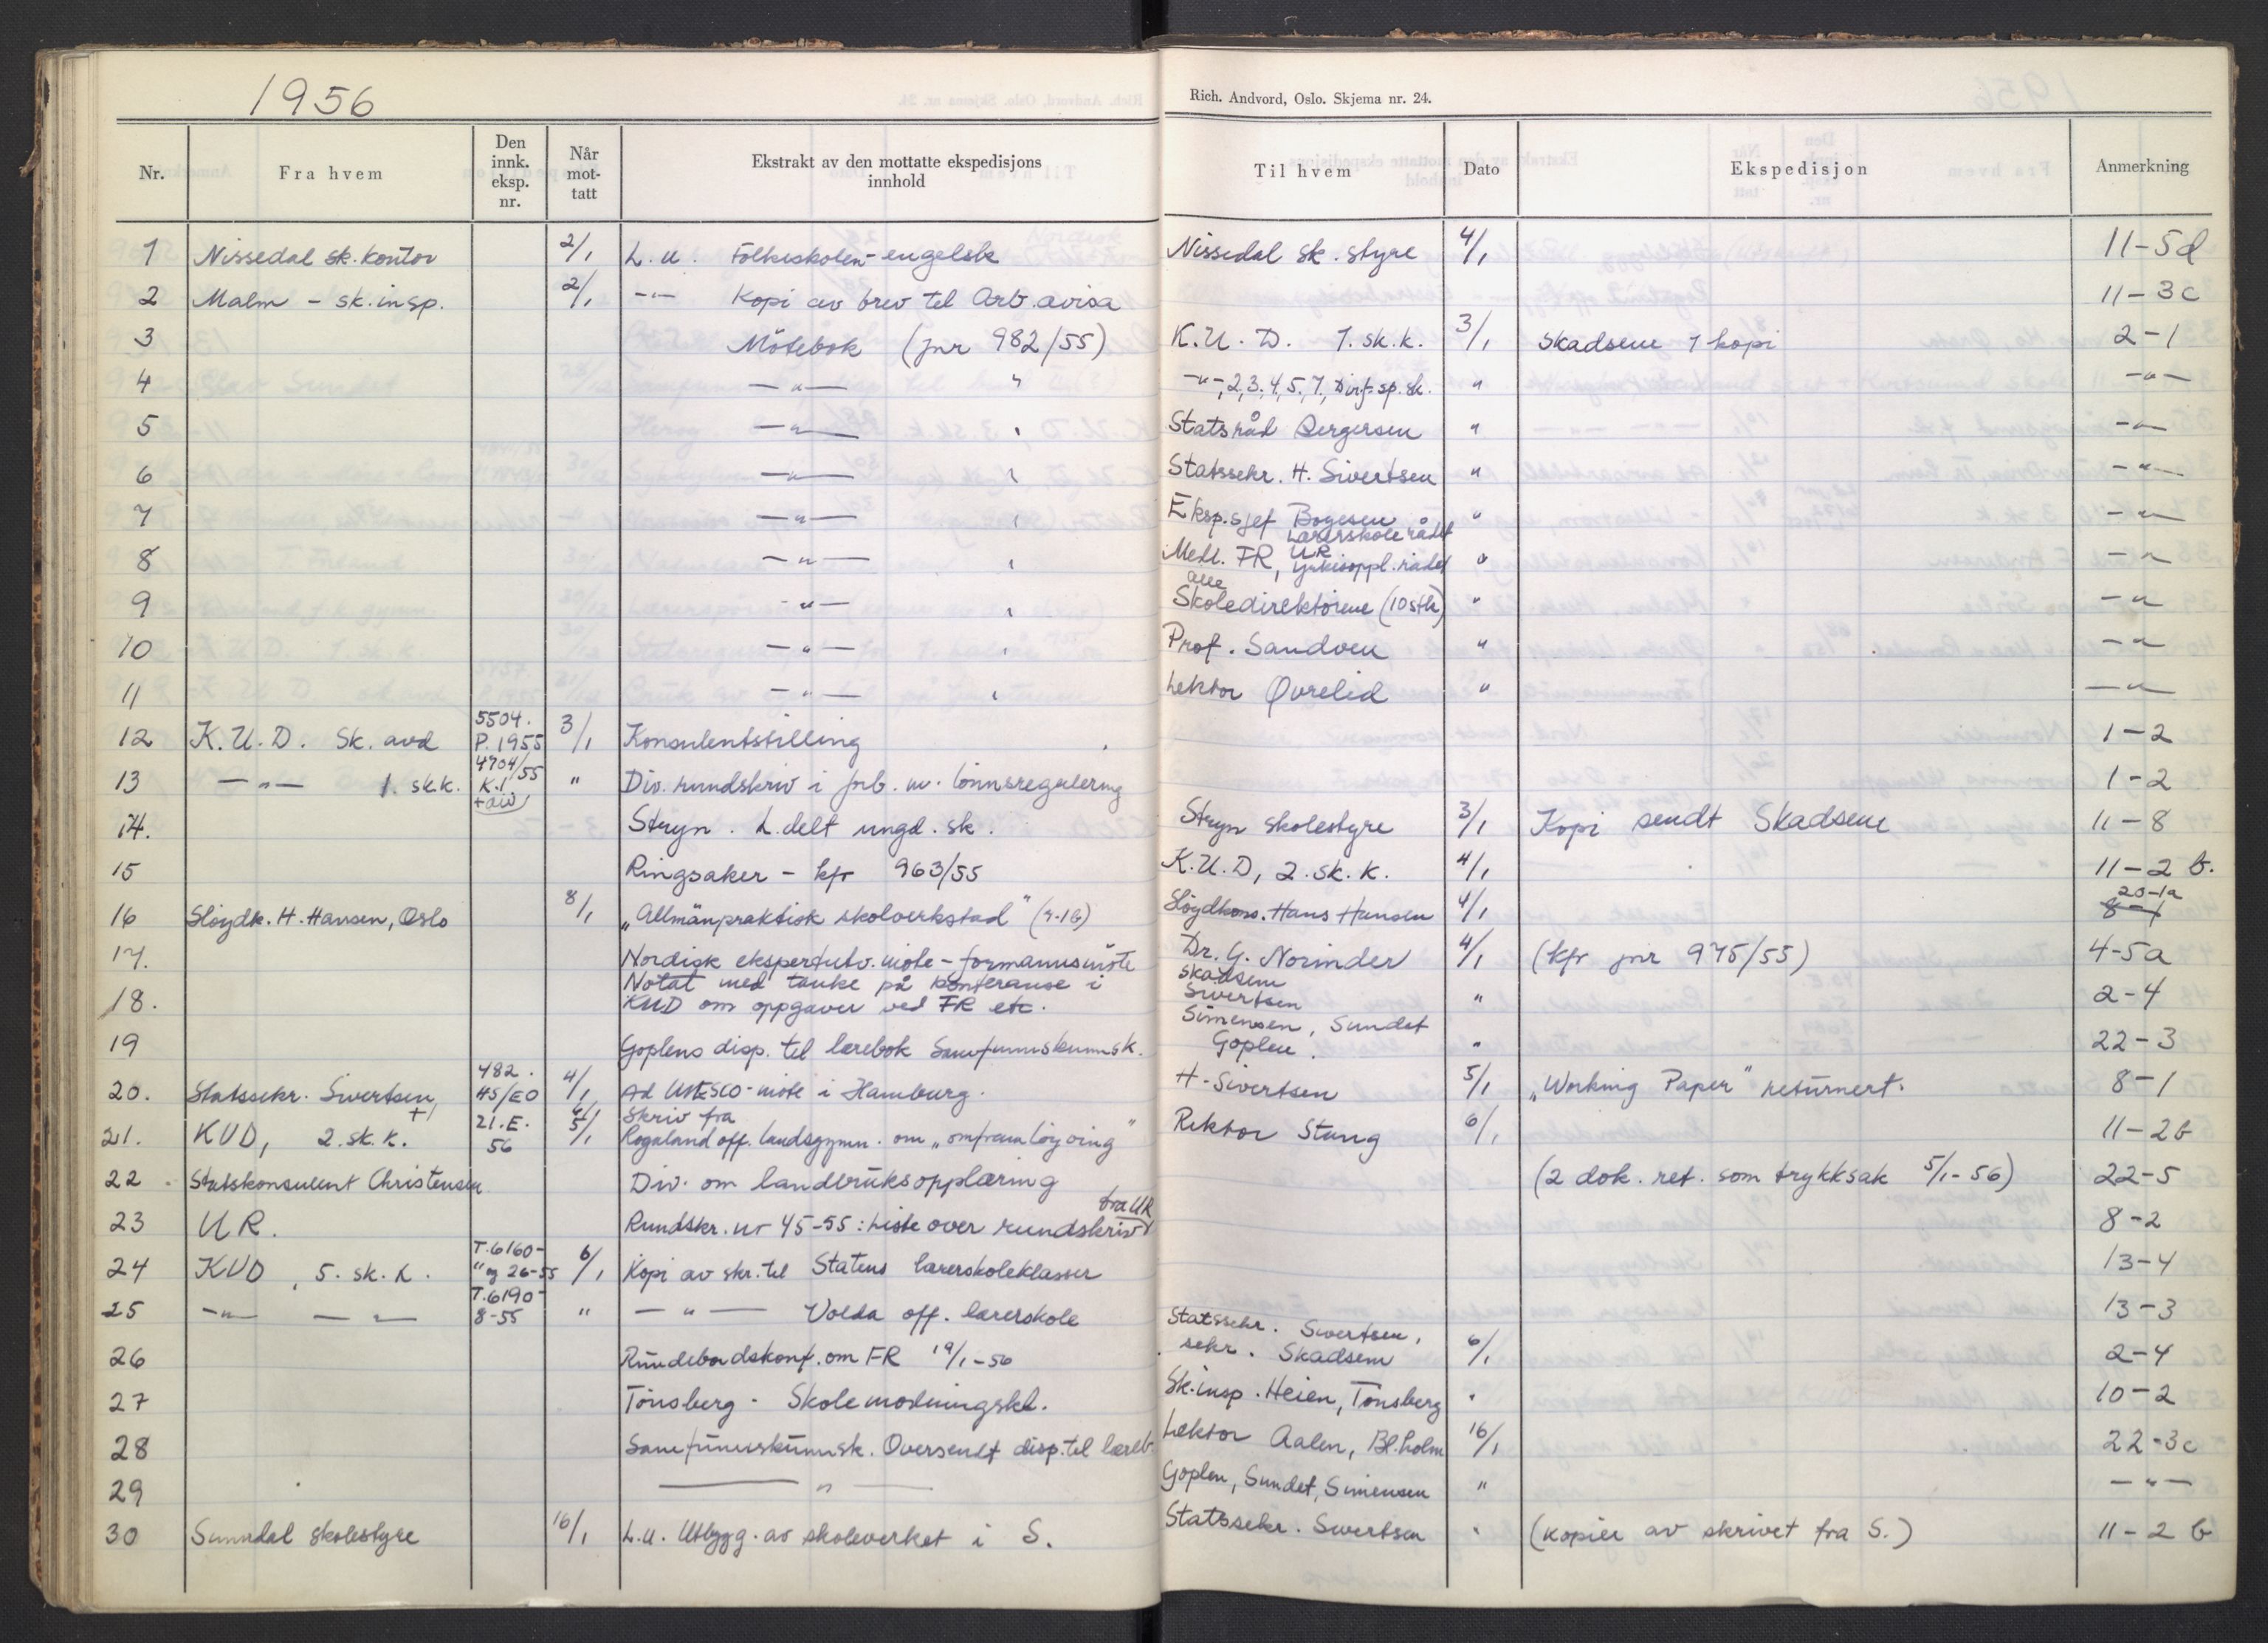 1956
Rich. Andvord, Oslo. Skjema nr. 24.
Nr. Fra hvem Den innk. eksp. nr. Når mot- tatt Ekstrakt av den mottatte ekspedisjons innhold Til hvem Dato Ekspedisjon Anmerkning
1 Nissedal sk. kontor 2/1 L.u. Folkeskolen - engelsk Nissedal sk. styre 4/1 11-5d
2 Malm - sk. insp. 2/1 -"- Kopi av brev til Arb. avisa 11-3c
3 Mötebok (jnr 982/55) K.U.D. 1. sk.k. 3/1 Skadsem 1 kopi 2-1
4 -"- " -"-, 2, 3, 4, 5, 7, sp. sk. " -"-
5 -"- " Statsråd Bergersen " -"-
6 -"- " Statssekr. H. Sivertsen " -"-
7 -"- " Eksp. sjef Boyesen " -"-
8 -"- " Medl. FR, UR, Lærerskolerådet yrkesoppl. rådet " -"-
9 -"- " alle Skoledirektörene (10 stk) " -"
10 -"- " Prof. Sandven " -"
11 -"- " Lektor Øvrelid " -"-
12 K.U.D. Sk. avd 5504. P. 1955 3/1 Konsulentstilling 1-2
13 -"- 1. sk.k. 4704/55 K.1. + div " Div. rundskriv i forb. m. lönnsregulering 1-2
14. Stryn. L. delt ungd. sk. Stryn skolestyre 3/1 Kopi sendt Skadsem 11-8
15 Ringsaker - kfr 963/55 K.U.D, 2. sk. k. 4/1 11-2 b.
16 Slöydk. H. Hansen, Oslo 8/1 „Allmänpraktisk skolverkstad" Slöydkons. Hans Hansen 4/1 20-1a 8-1
17. Nordisk ekspertutv. möte - formannsmöte Dr. G. Norinder 4/1 (kfr jnr 975/55) 4-5a
18. Notat med tanke på konferanse i KUD om oppgaver ved FR etc. Skadsem Sivertsen " 2-4
19 Goplens disp. til lærebok Samfunnskunnsk. Simensen, Sundet Goplen. " 22-3
20. Statssekr. Sivertsen 482. 45/EO 4/1 Ad UNESCO-möte i Hamburg. H. Sivertsen 5/1 „Working Paper" returnert. 8-1
21. KUD, 2. sk. k. 21. E. 56 5/1 Skriv fra Rogaland off. landsgymn. om Rektor Stang 6/1 11-2b
22 Statskonsulent Christensen Div. om landbruksopplæring (2 dok. ret. som trykksak 5/1-56) 22-5
23 UR. Rundskr. nr 45-55: Liste over rundskriv fra UR 8-2
24 KUD, 5. sk. k. T. 6160- " og 26-55 6/1 Kopi av skr. til Statens lærerskoleklasser 13-4
25 -"- -"- T. 6190- 8-55 " -"- Volda off. lærerskole 13-3
26 Rundebordskonf. om FR 19/1-56 Statssekr. Sivertsen, sekr. Skadsem 6/1 2-4
27 Tönsberg - Skolemodningskl. Sk. insp. Heien, Tönsberg " 10-2
28 Samfunnskunnsk. Oversendt disp. til læreb. Lektor Aalen, Bl.holm 16/1 22-3c
29 -"- Goplen, Sundet, Simensen " -"-
30 Sunndal skolestyre 16/1 L.u. Utbygg. av skoleverket i S. Statssekr. Sivertsen " (Kopier av skrivet fra S.) 11-2 b